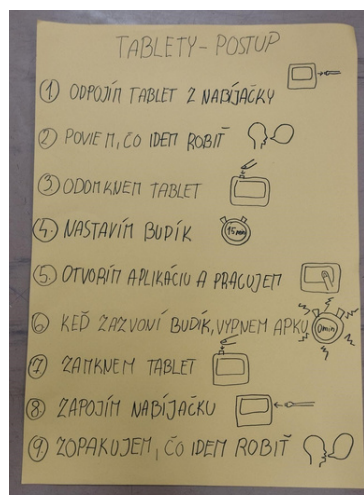 TABLETY - POSTUP
1 ODPOJÍM TABLET Z NABÍJAČKY
2 POVIEM, ČO IDEM ROBIŤ
3. ODOMKNEM TABLET
4. NASTAVÍM BUDÍK 15 min
5. OTVORÍM APLIKÁCIU A PRACUJEM
6 KEĎ ZAZVONÍ BUDÍK, VYPNEM APKU 0 min
7 ZAMKNEM TABLET
8 ZAPOJÍM NABÍJAČKU
9 ZOPAKUJEM, ČO IDEM ROBIŤ